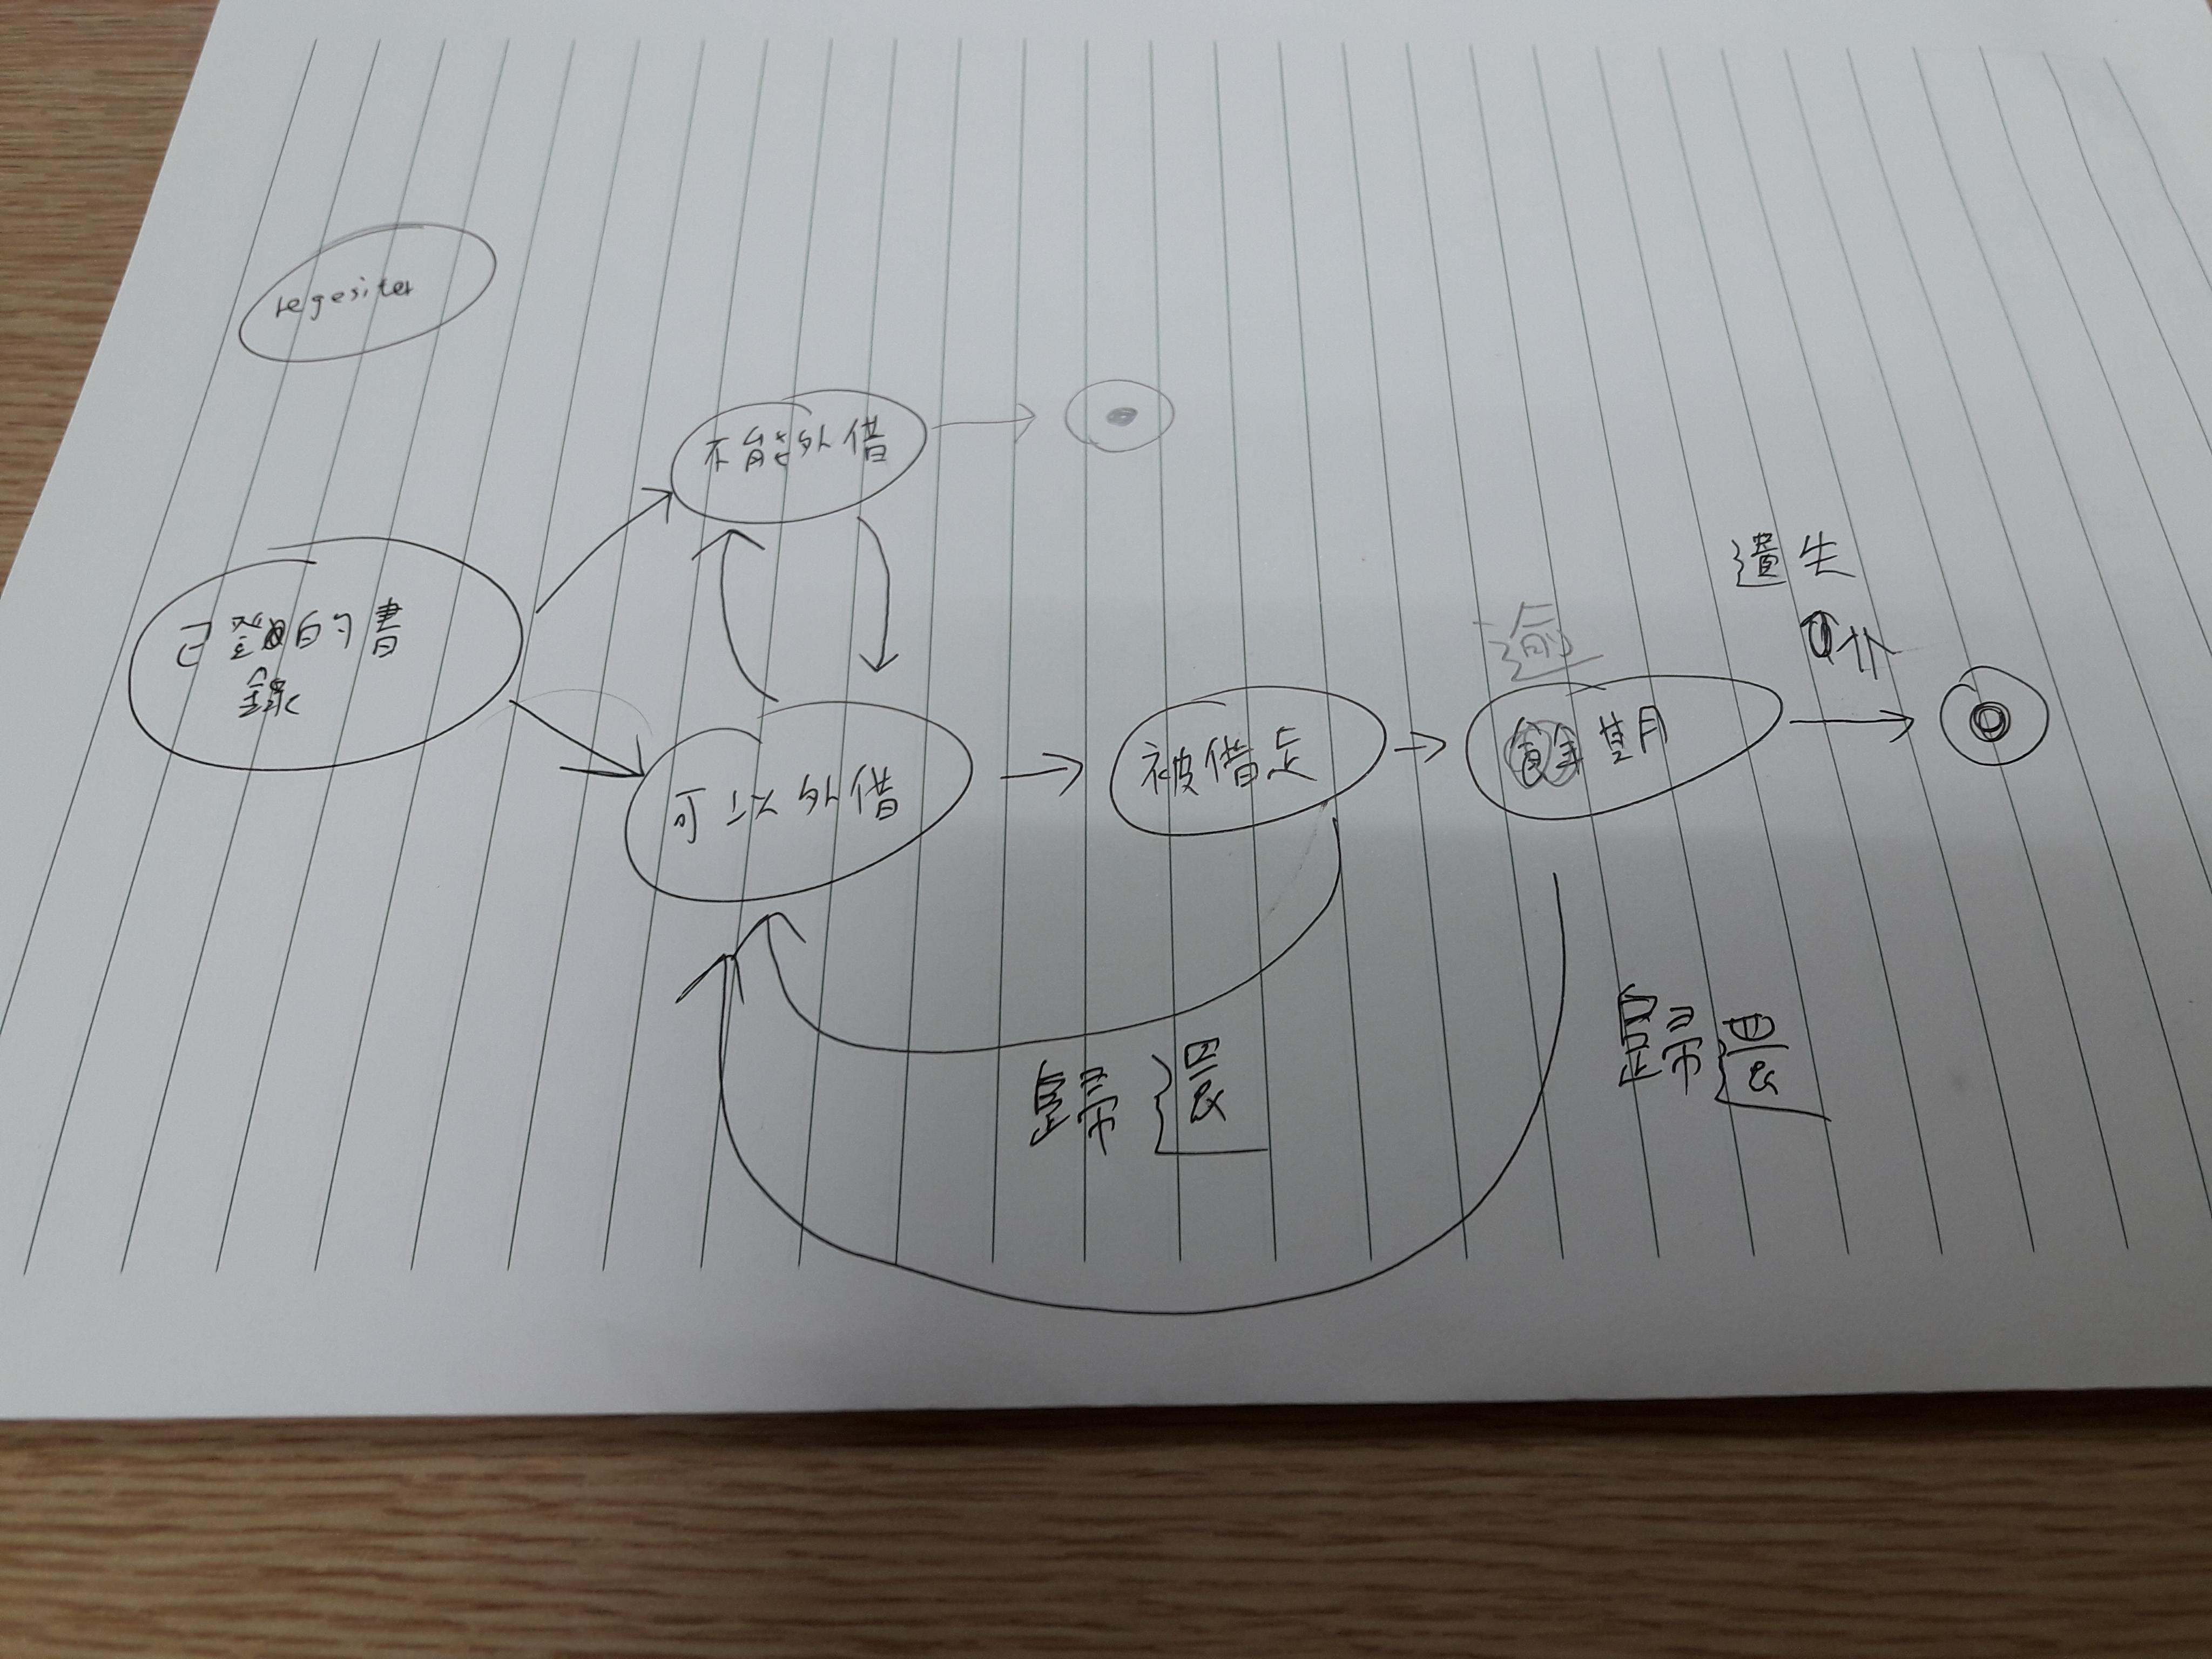 regesiter
不能外借
已登的書
錄
可以外借
被借走
逾
期
遺失
歸還
歸還